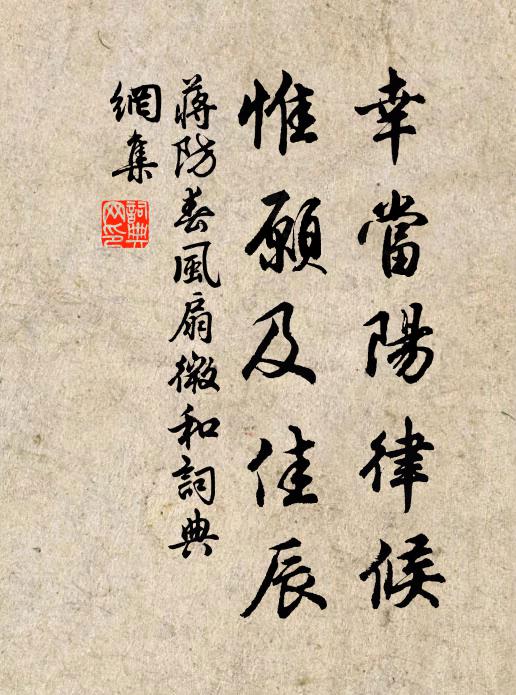 幸當陽律候
惟願及佳辰
蔣防春風扇微和詞典
網集
詞典
网印